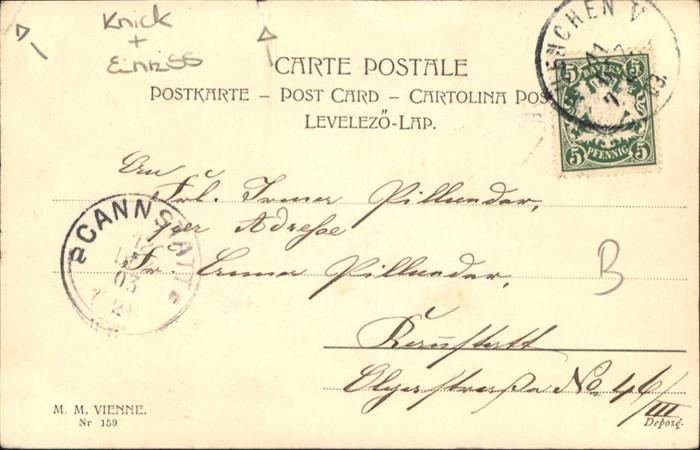 Knick
+
Einriss
CARTE POSTALE
POSTKARTE – POST CARD – CARTOLINA POS
LEVELEZŐ-LAP.
MUENCHEN V
BAYERN
5 5
PFENNIG
5 5
An
Frl. Irma Pillunder,
per Adresse
Fr. Emma Pillunder,
Cannstatt
No 46/III
CANNSTATT
DEZ
03
B
M. M. VIENNE.
Nr 159
Deposé.